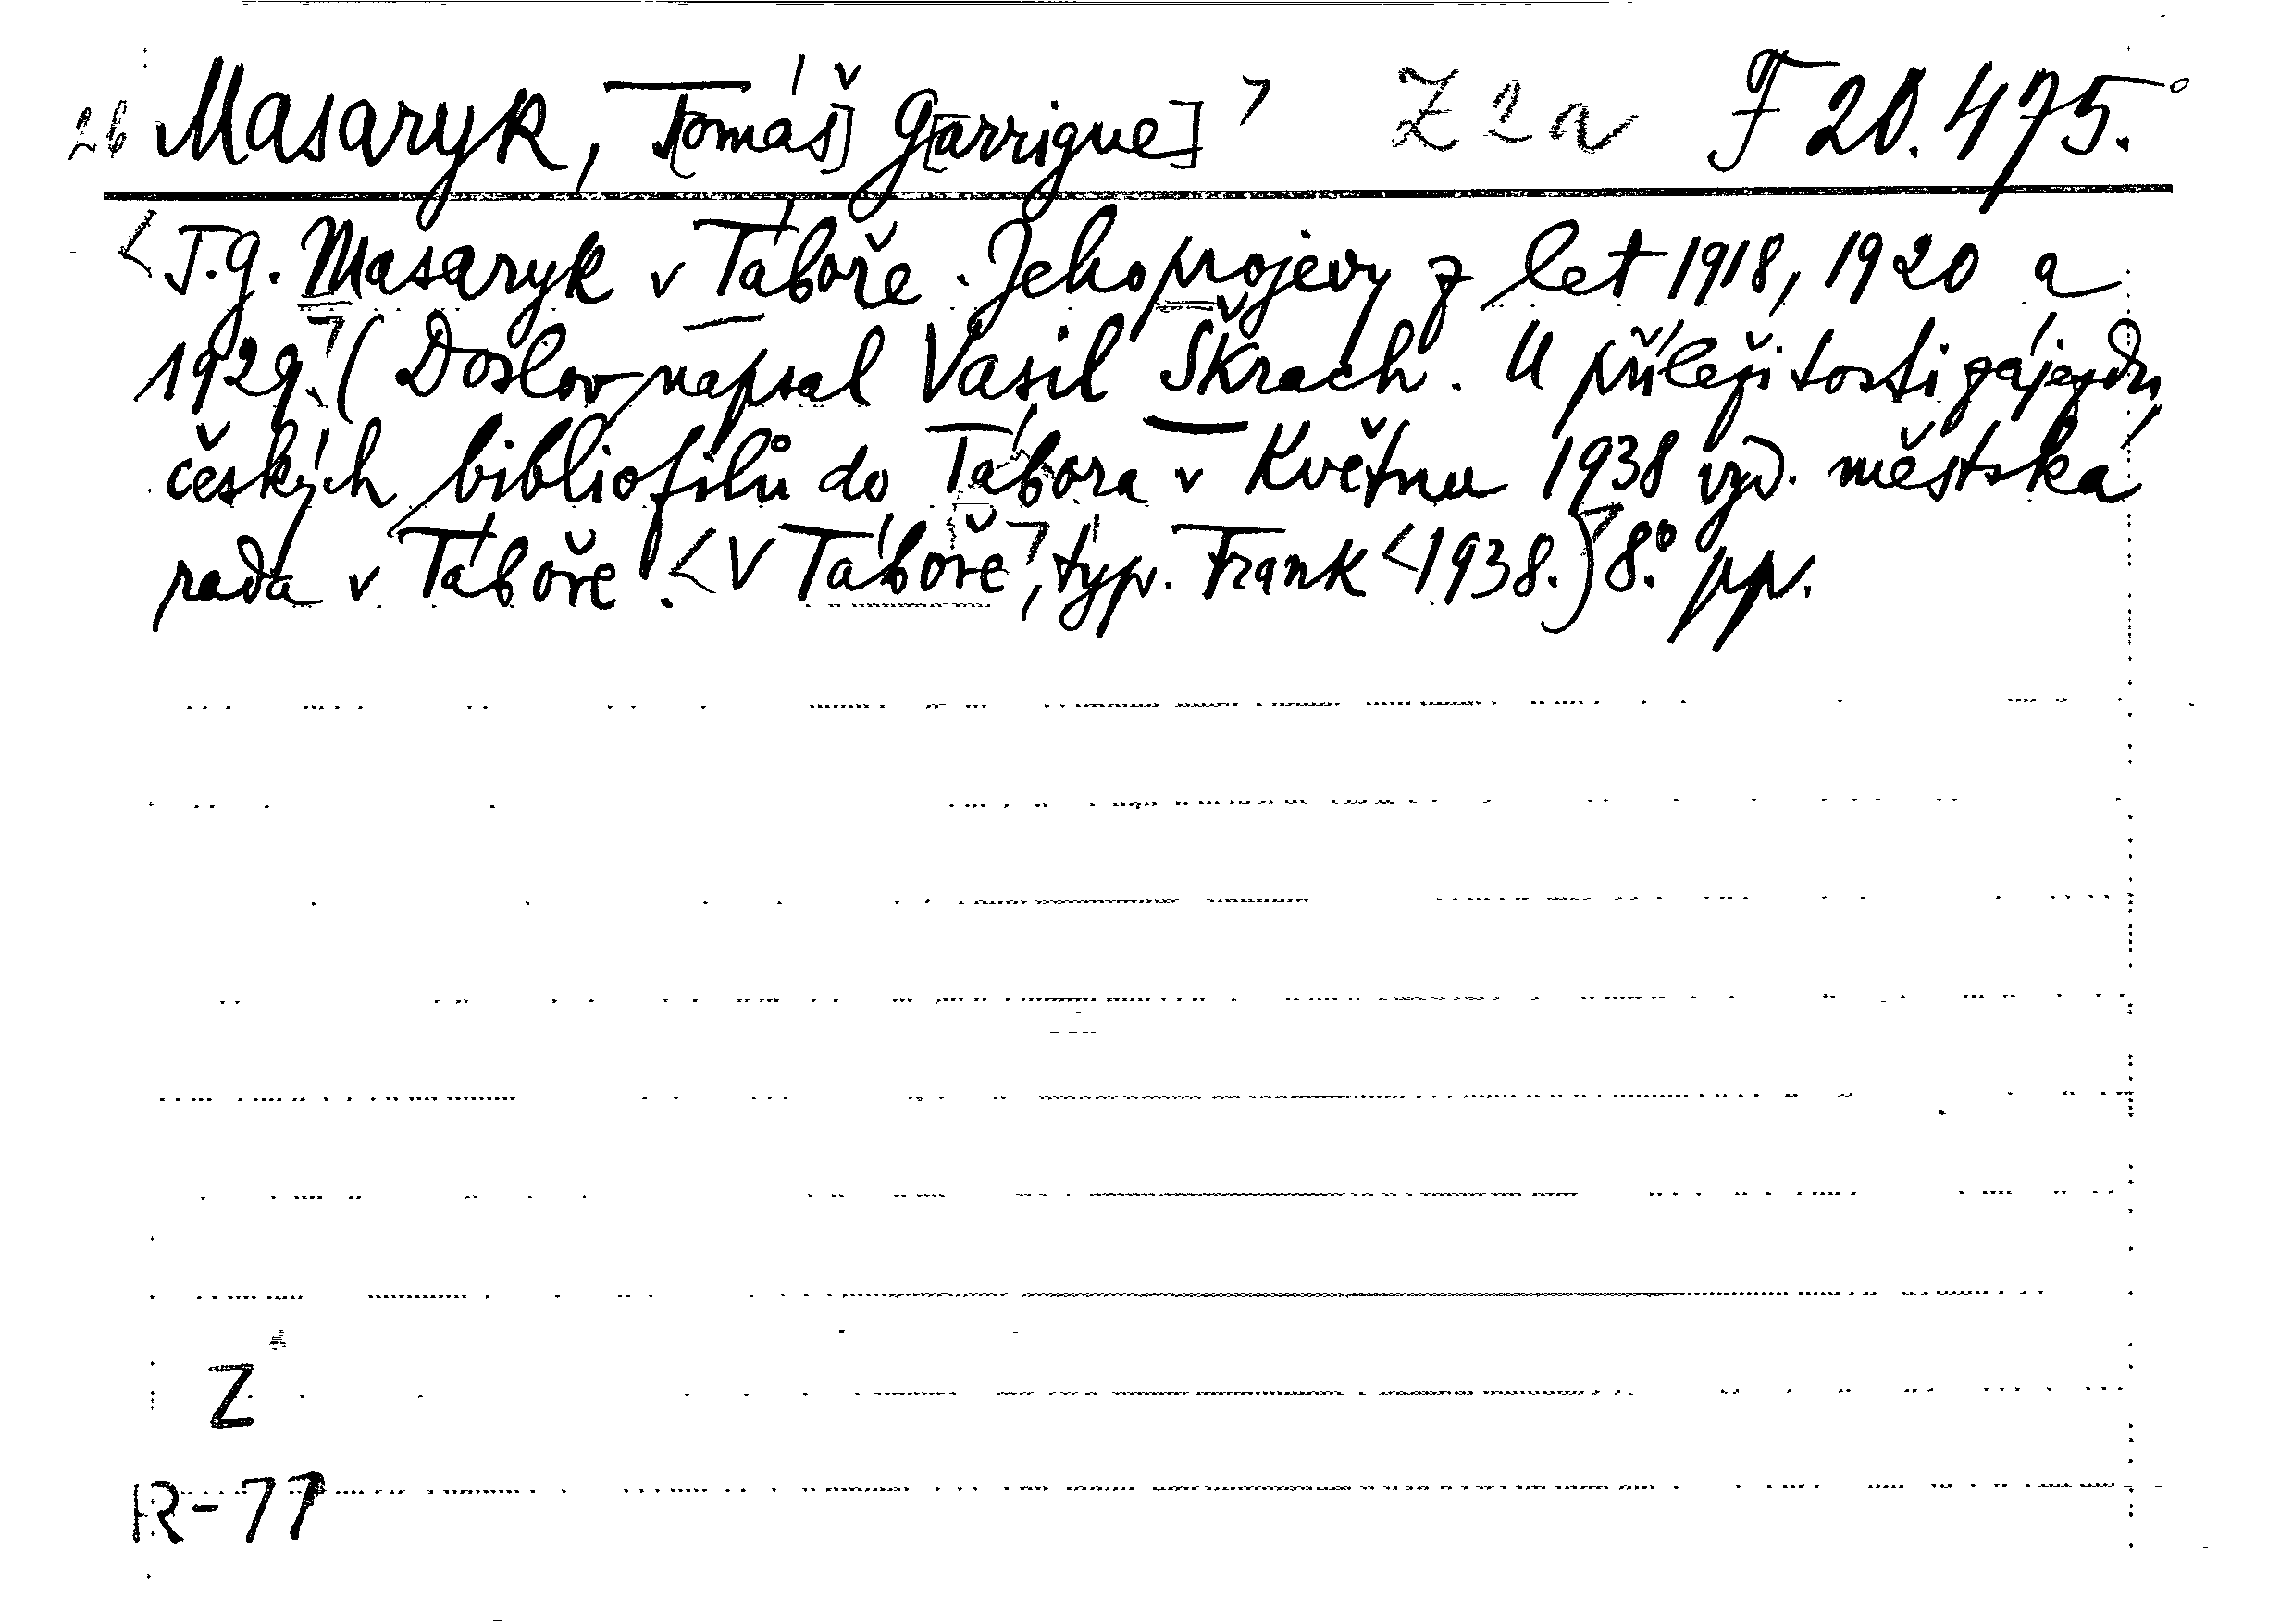 26 Masaryk, T[omáš] G[arrigue] ˃ Z 2a F 20.475.°
<T.G. Masaryk v Táboře. Jeho projevy z let 1918, 1920 a
1929.> (Doslov napsal Vasil Škrach. U příležitosti zájezdu
českých bibliofilů do Tábora v květnu 1938 vyd. městská
rada v Táboře. <V Táboře>, typ. Frank <1938.>) 8.° pp.
Z
R-77